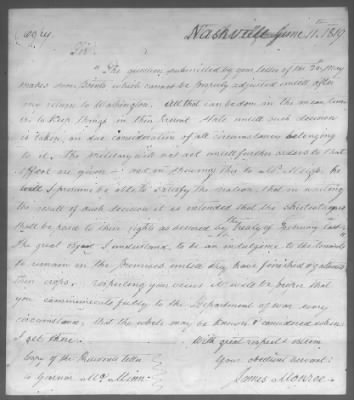 (Copy) Nashville June 11th 1819
Sir
The question submitted by your letter of the 24 May
makes some points which cannot be properly adjusted untill after
my return to Washington. All that can be done in the mean time
is to keep things in their present state untill such decision
is taken, on due consideration of all circumstances belonging
to it. The military will not act untill further orders to that
effect are given &
will I presume be able to satisfy the nation, that in waiting
the result of such decision it is intended that the strictest regard
shall be paid to their rights as secured by the Treaty of February last
The great object I understand, to be an indulgence to the tenants
to remain on the premises untill they have finished & gathered
their crops. respecting your views it will be proper that
you communicate fully to the Department of war every
circumstance, that the whole may be known & considered when
I get there. With great respect & esteem
Copy of the Presidents letter Your obedient servant
to Governor McMinn James Monroe